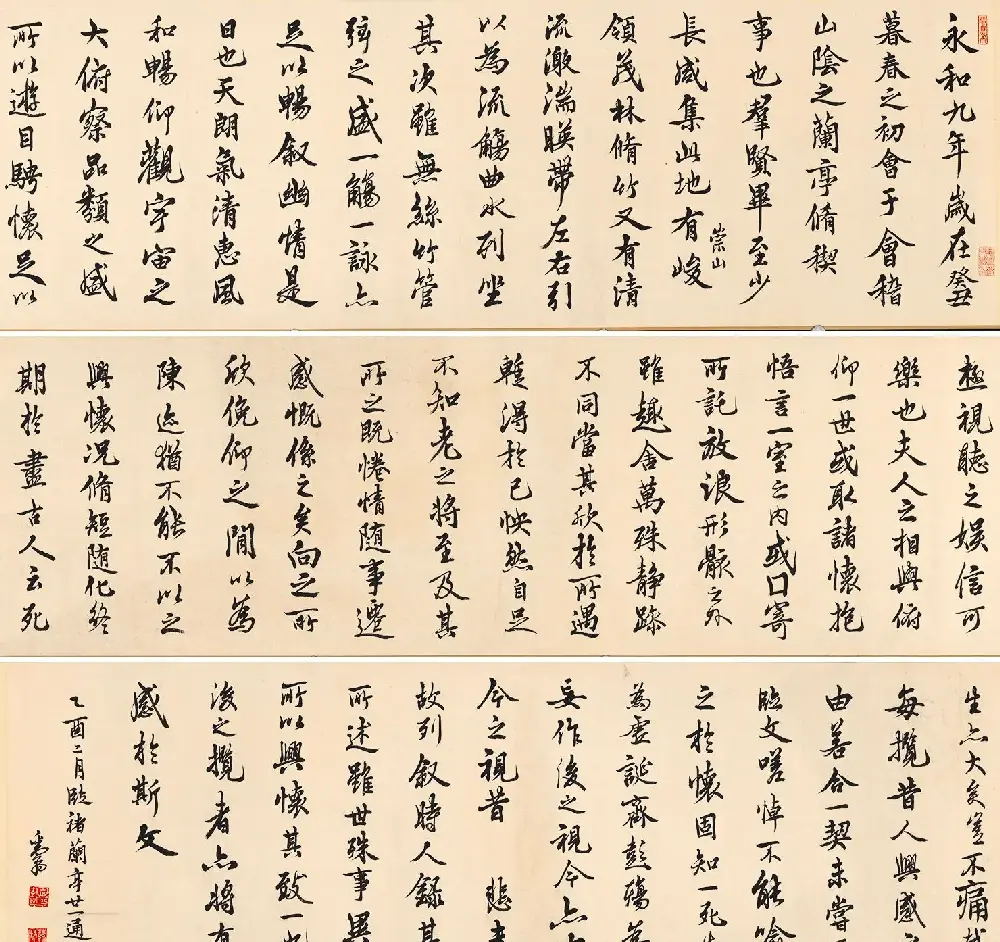 永和九年歲在癸丑
暮春之初會于會稽
山陰之蘭亭脩稧
事也羣賢畢至少
長咸集此地有崇山峻
領茂林脩竹又有清
流激湍暎帶左右引
以為流觴曲水列坐
其次雖無絲竹管
弦之盛一觴一詠亦
足以暢叙幽情是
日也天朗氣清惠風
和暢仰觀宇宙之
大俯察品類之盛
所以遊目騁懷足以
極視聽之娛信可
樂也夫人之相與俯
仰一世或取諸懷抱
悟言一室之内或口寄
所託放浪形骸之外
雖趣舍萬殊静躁
不同當其欣於所遇
蹔得於己怏然自足
不知老之將至及其
所之既惓情随事遷
感慨係之矣向之所
欣俛仰之閒以為
陳迹猶不能不以之
興懷況脩短随化終
期於盡古人云死
生亦大矣豈不痛哉
每攬昔人興感之
由若合一契未嘗
臨文嗟悼不能喻
之於懷固知一死生
為虛誕齊彭殤為
妄作後之視今亦
今之視昔 悲夫
故列叙時人録其
所述雖世殊事異
所以興懷其致一也
後之攬者亦將有
感於斯文
乙酉二月臨褚蘭亭廿一通